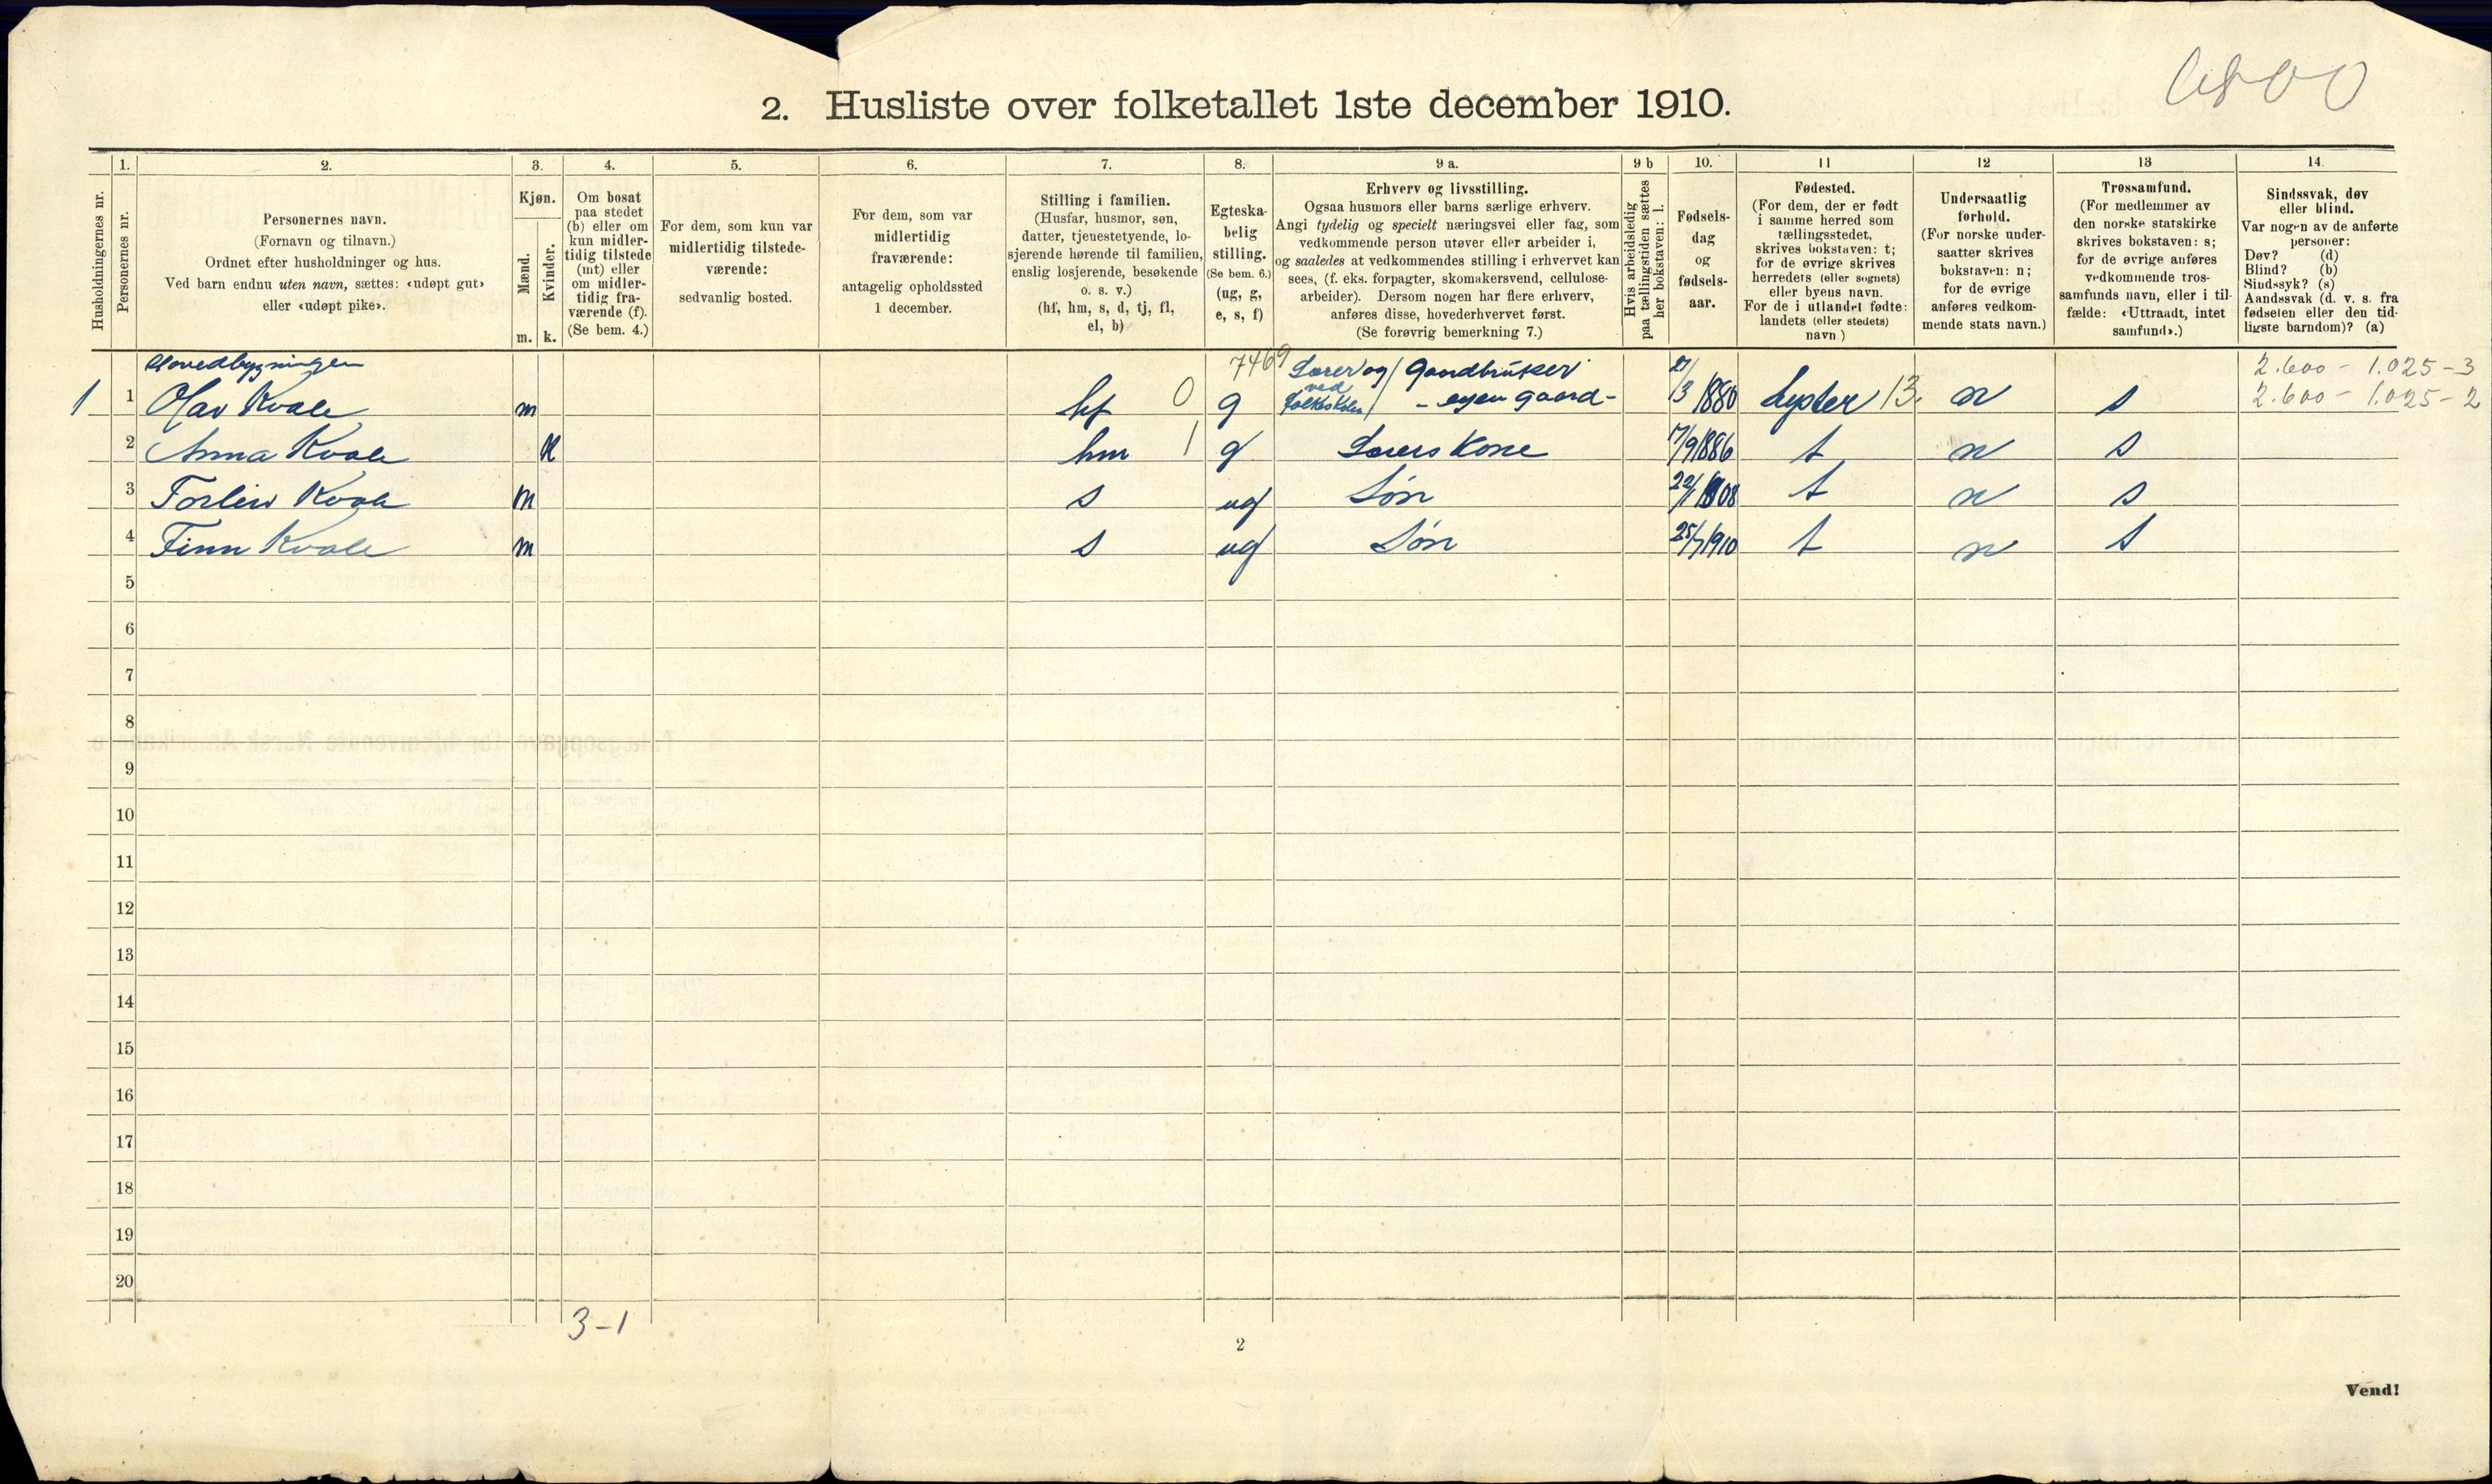 2. Husliste over folketallet 1ste december 1910.
Husholdningernes nr.
1.
Personernes nr.
2.
Personernes navn.
(Fornavn og tilnavn.)
Ordnet efter husholdninger og hus.
Ved barn endnu uten navn, sættes: «udøpt gut»
eller «udøpt pike».
3.
Kjøn.
Mænd.
Kvinder.
m. k.
4.
Om bosat
paa stedet
(b) eller om
kun midler-
tidig tilstede
(mt) eller
om midler-
tidig fra-
værende (f).
(Se bem. 4.)
5.
For dem, som kun var
midlertidig tilstede-
værende:
sedvanlig bosted.
6.
For dem, som var
midlertidig
fraværende:
antagelig opholdssted
1 december.
7.
Stilling i familien.
(Husfar, husmor, søn,
datter, tjenestetyende, lo-
sjerende hørende til familien,
enslig losjerende, besøkende
o. s. v.)
(hf, hm, s, d, tj, fl,
el, b)
8.
Egteska-
belig
stilling.
(Se bem. 6.)
(ug, g,
e, s, f)
9 a.
Erhverv og livsstilling.
Ogsaa husmors eller barns særlige erhverv.
Angi tydelig og specielt næringsvei eller fag, som
vedkommende person utøver eller arbeider i,
og saaledes at vedkommendes stilling i erhvervet kan
sees, (f. eks. forpagter, skomakersvend, cellulose-
arbeider). Dersom nogen har flere erhverv,
anføres disse, hovederhvervet først.
(Se forøvrig bemerkning 7.)
9 b
Hvis arbeidsledig
paa tællingstiden sættes
her bokstaven: l.
10.
Fødsels-
dag
og
fødsels-
aar.
11
Fødested.
(For dem, der er født
i samme herred som
tællingsstedet,
skrives bokstaven: t;
for de øvrige skrives
herredets (eller sognets)
eller byens navn.
For de i utlandet fødte:
landets (eller stedets)
navn)
12
Undersaatlig
forhold.
(For norske under-
saatter skrives
bokstaven: n;
for de øvrige
anføres vedkom-
mende stats navn.)
13
Trossamfund.
(For medlemmer av
den norske statskirke
skrives bokstaven: s;
for de øvrige anføres
vedkommende tros-
samfunds navn, eller i til-
fælde: «Uttraadt, intet
samfund».)
14
Sindssvak, døv
eller blind.
Var nogen av de anførte
personer:
Døv? (d)
Blind? (b)
Sindssyk? (s)
Aandssvak (d. v. s. fra
fødselen eller den tid-
ligste barndom)? (a)
Hovedbygningen 7469 Lærer og / Gaardbruker 2.600 - 1.025 - 3
1 1 Olav Kvale m hf 0 g ved folkeskolen / - egen gaard - /3 1880 Lyster 13. n s 2.600 - 1.025 - 2
2 Anna Kvale k hm 1 g Lærers Kone 17/9 1886 t n s
3 Torleiv Kvale m s ug Søn 22/1 1908 t n s
4 Finn Kvale m s ug Søn 25/7 1910 t n s
5
6
7
8
9
10
11
12
13
14
15
16
17
18
19
20
3-1
2
Vend!